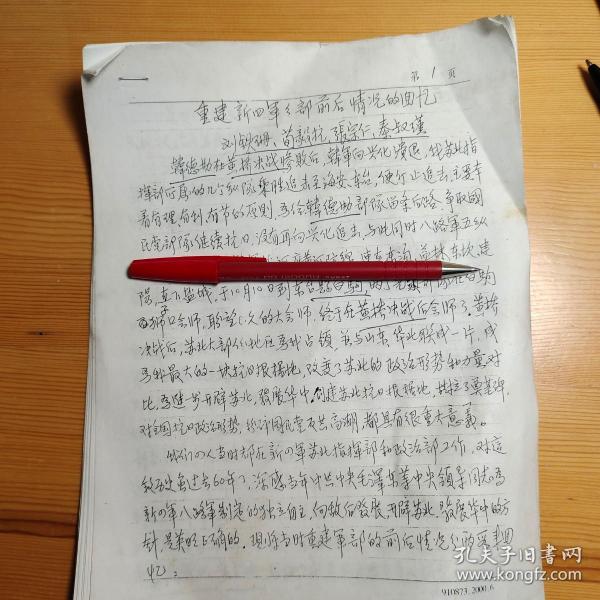 第 1 页
重建新四军军部前后情况的回忆
刘铁珊、苟毅抗、張宗仁、秦叔瑾
韓德勤在黄桥决战惨败后,韓军向兴化潰退,我苏北指
挥部所属的几个纵队乘胜追击至海安、东台,便停止追击,主要本
着有理、有利、有节的原则,再给韓德勤部隊留条后路,争取國
民党部隊继续抗日,没有再向兴化追击,与此同时八路军五纵
陽,直下盐城,于10月10日到东台县白駒
狮口会师,盼望已久的大会师,终于在黄桥决战后会师了。黄桥
决战后,苏北大部份地区为我占领,并与山东、华北联成一片,成
为我最大的一块抗日根据地,改变了苏北的政治形势和力量对
比,为进一步开辟苏北,發展华中,创建苏北抗日根据地,打下了奠基碑,
对全国抗日政治形势,给汗国民党反共高潮,都具有很重大意義。
我们四人当时都在新四軍苏北指揮部和政治部工作,对這
段历史虽过去60年了,深感当年中共中央毛澤东等中央领导同志为
新四軍八路軍制定的独立自主、向敌后發展、开辟苏北、發展华中的方
针,是英明正确的。现将当时重建軍部的前后情况
忆:
910873.2000.6
孔夫子旧书网
www.kongfz.com